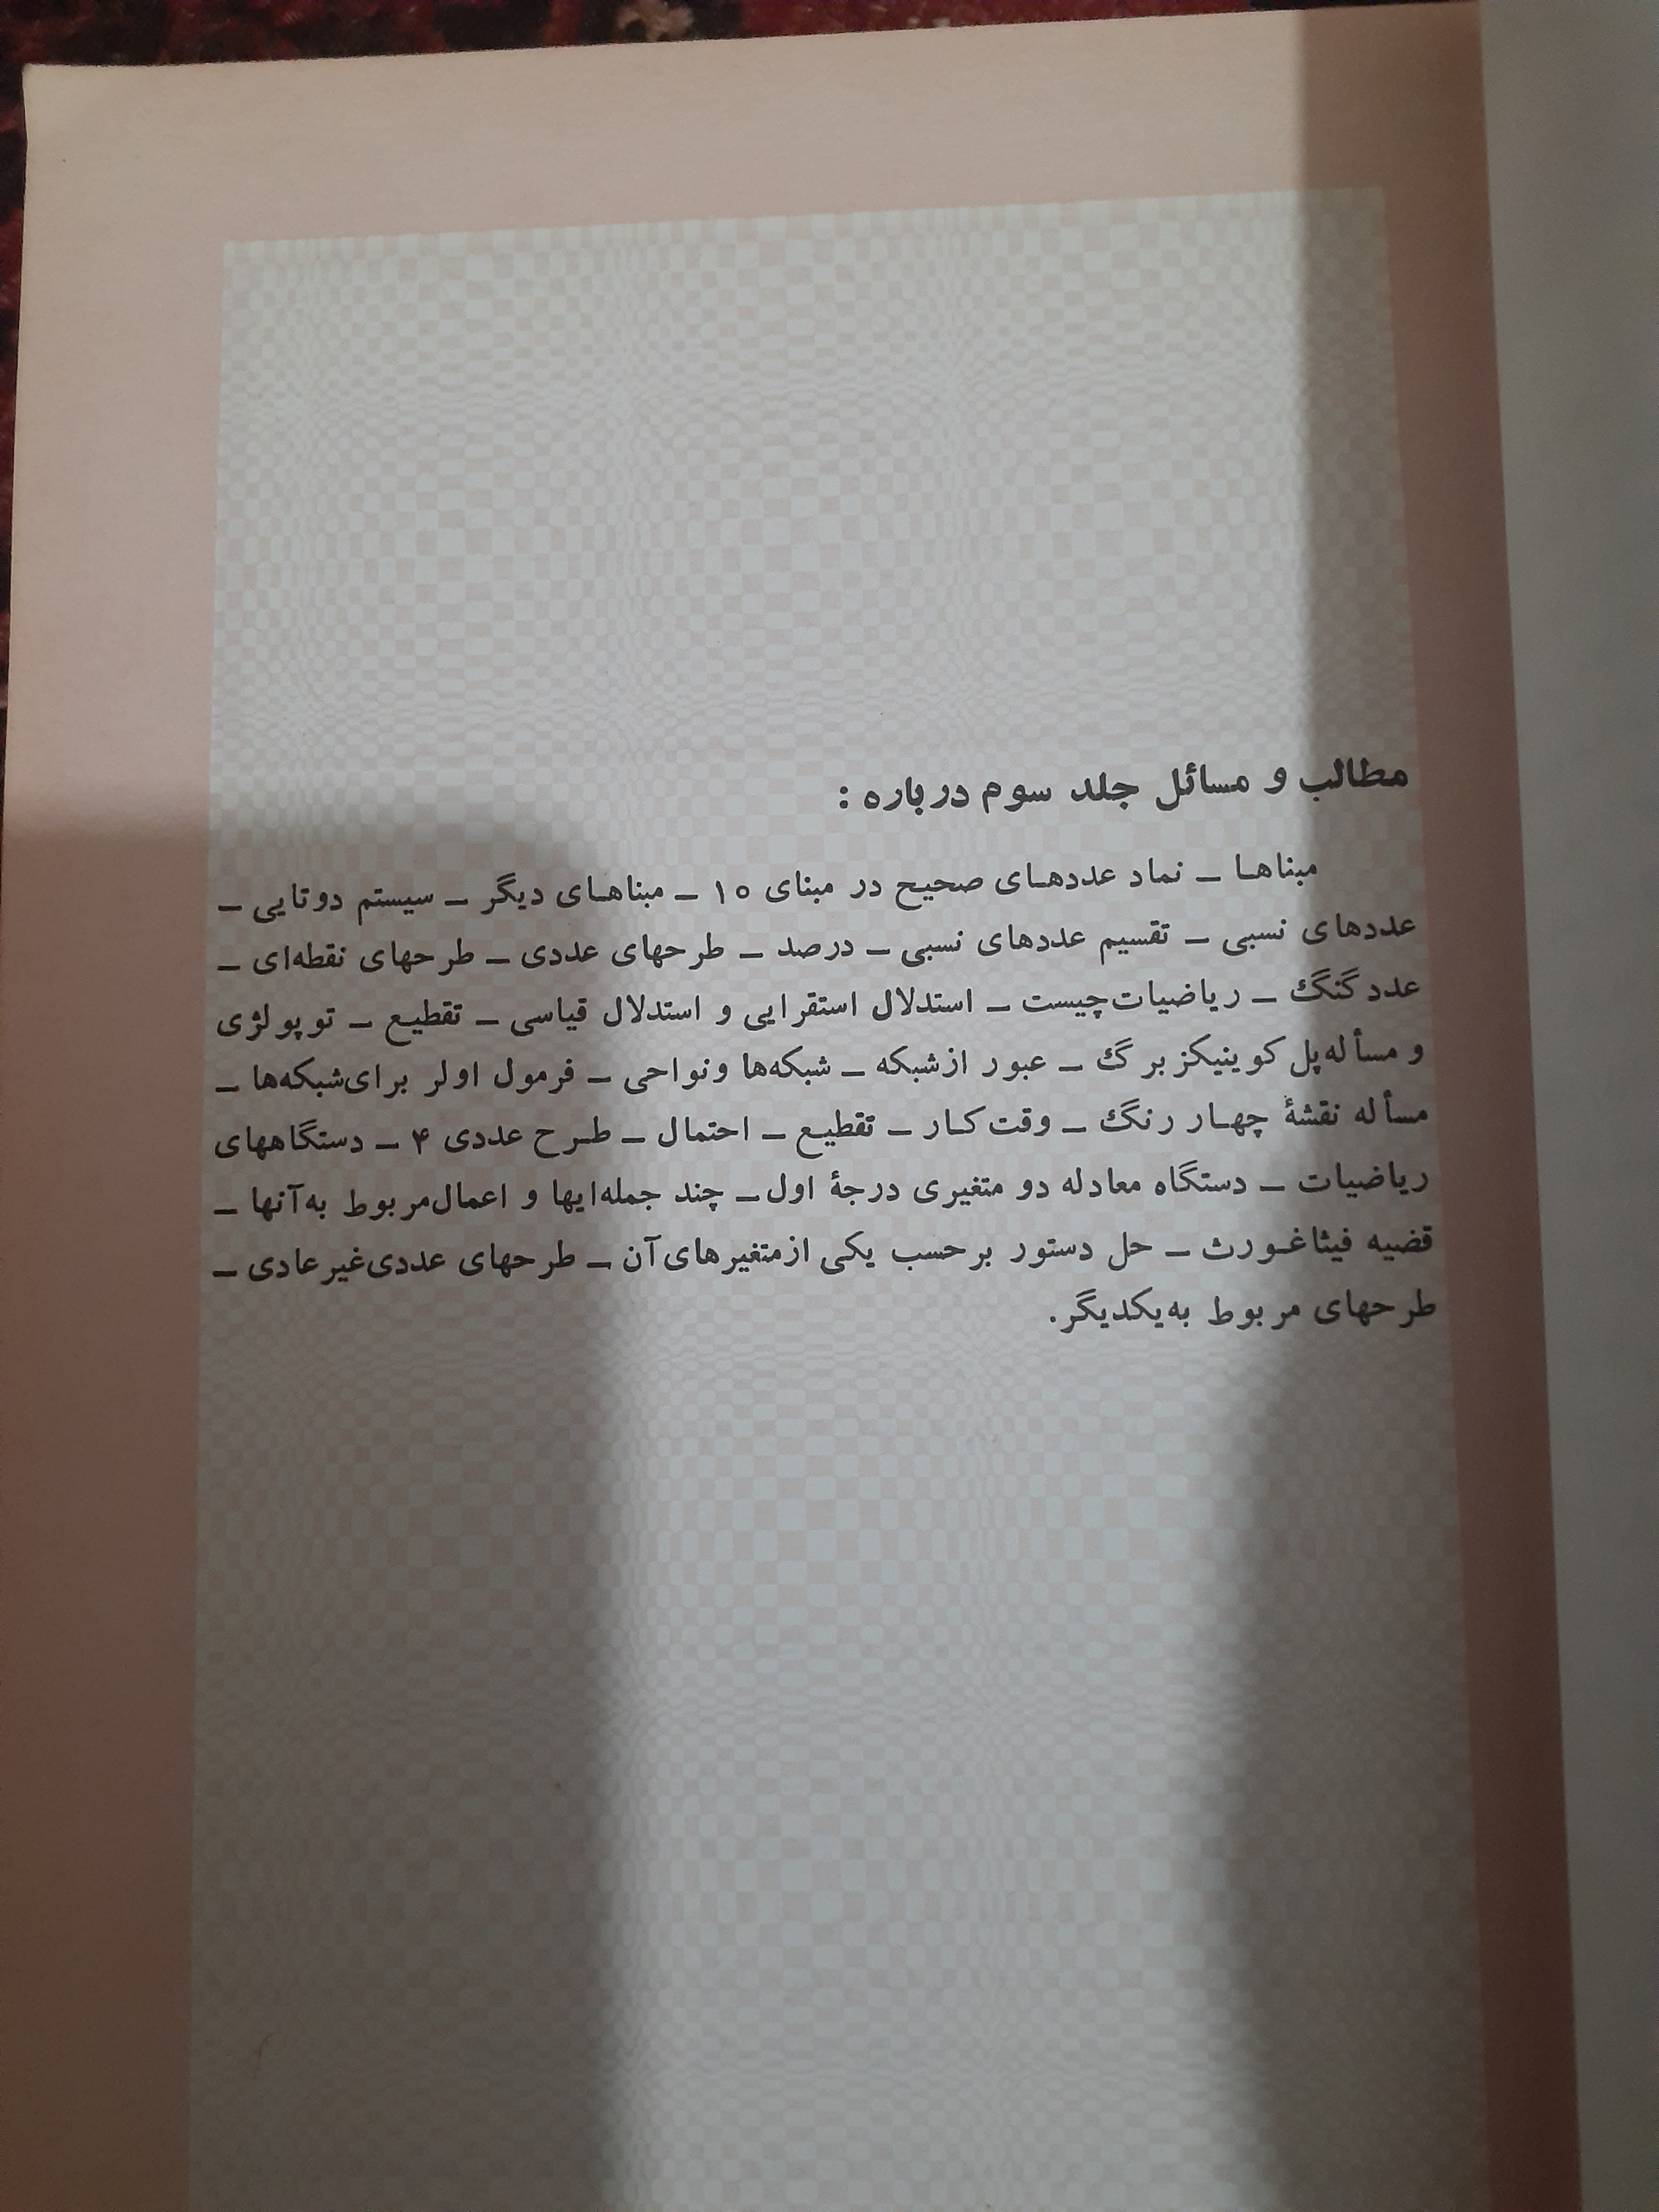 مطالب و مسائل جلد سوم درباره :
مبناها ــ نماد عددهای صحیح در مبنای ۱۰ ــ مبناهای دیگر ــ سیستم دوتایی ــ
عددهای نسبی ــ تقسیم عددهای نسبی ــ درصد ــ طرحهای عددی ــ طرحهای نقطه‌ای ــ
عدد گنگ ــ ریاضیات چیست ــ استدلال استقرایی و استدلال قیاسی ــ تقطیع ــ توپولژی
و مسأله پل کوینیکزبرگ ــ عبور از شبکه ــ شبکه‌ها و نواحی ــ فرمول اولر برای شبکه‌ها ــ
مسأله نقشهٔ چهار رنگ ــ وقت کار ــ تقطیع ــ احتمال ــ طرح عددی ۴ ــ دستگاههای
ریاضیات ــ دستگاه معادله دو متغیری درجهٔ اول ــ چند جمله‌ایها و اعمال مربوط به آنها ــ
قضیه فیثاغورث ــ حل دستور برحسب یکی از متغیرهای آن ــ طرحهای عددی غیرعادی ــ
طرحهای مربوط به یکدیگر.